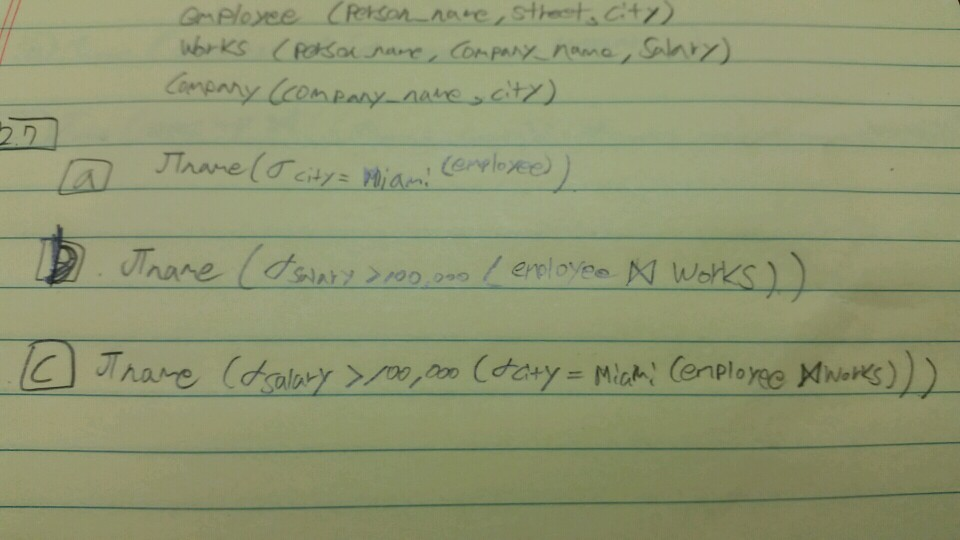 employee (person_name, street, city)
Works (person_name, Company_name, Salary)
Company (company_name, city)
2.7
a πname (σ city = Miami (employee))
b. πname (σ salary > 100,000 (employee ⋈ works))
c πname (σ salary > 100,000 (σ city = Miami (employee ⋈ works)))